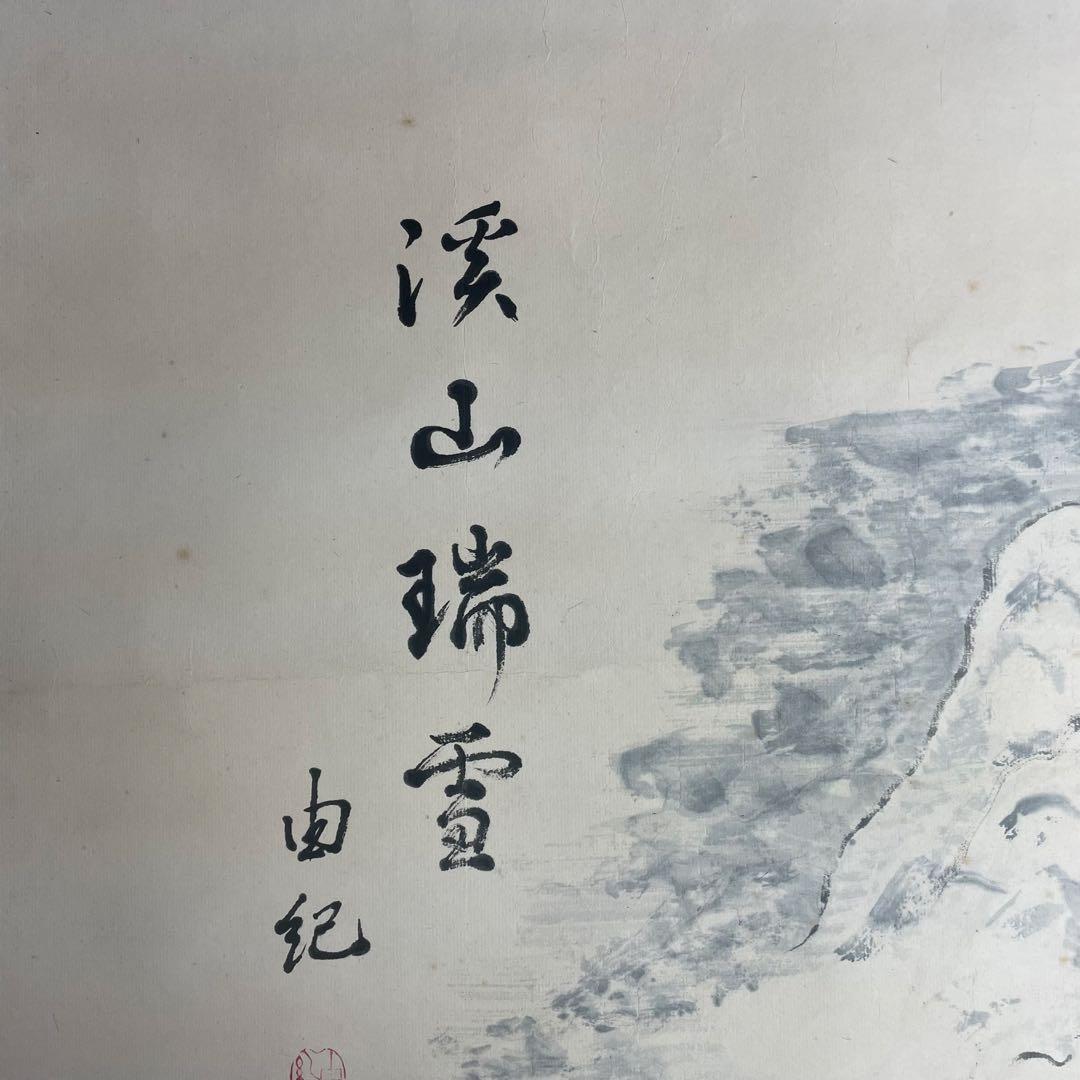 溪山瑞雪
由紀